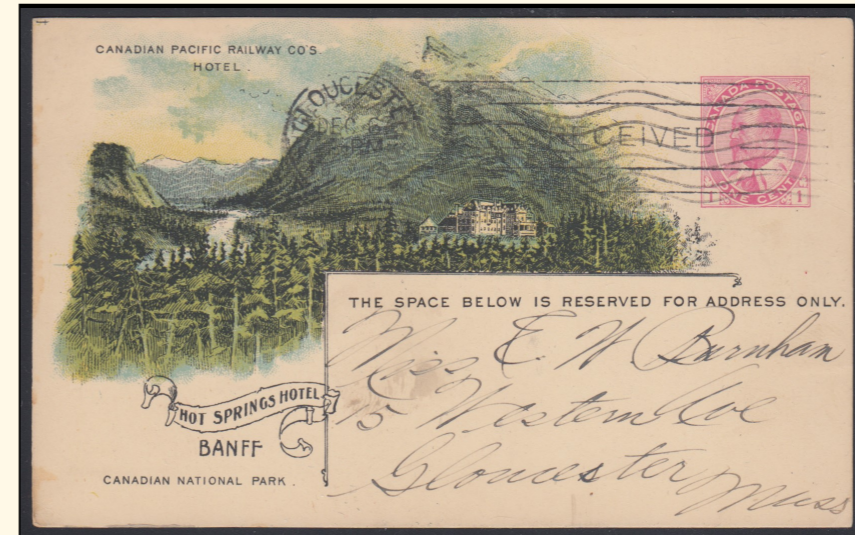 CANADIAN PACIFIC RAILWAY CO'S
HOTEL.
GLOUCESTER
DEC
RECEIVED
CANADA POSTAGE
1 ONE CENT 1
THE SPACE BELOW IS RESERVED FOR ADDRESS ONLY.
Miss E. W Burnham
75 Western Ave
Gloucester
Mass
HOT SPRINGS HOTEL
BANFF
CANADIAN NATIONAL PARK.